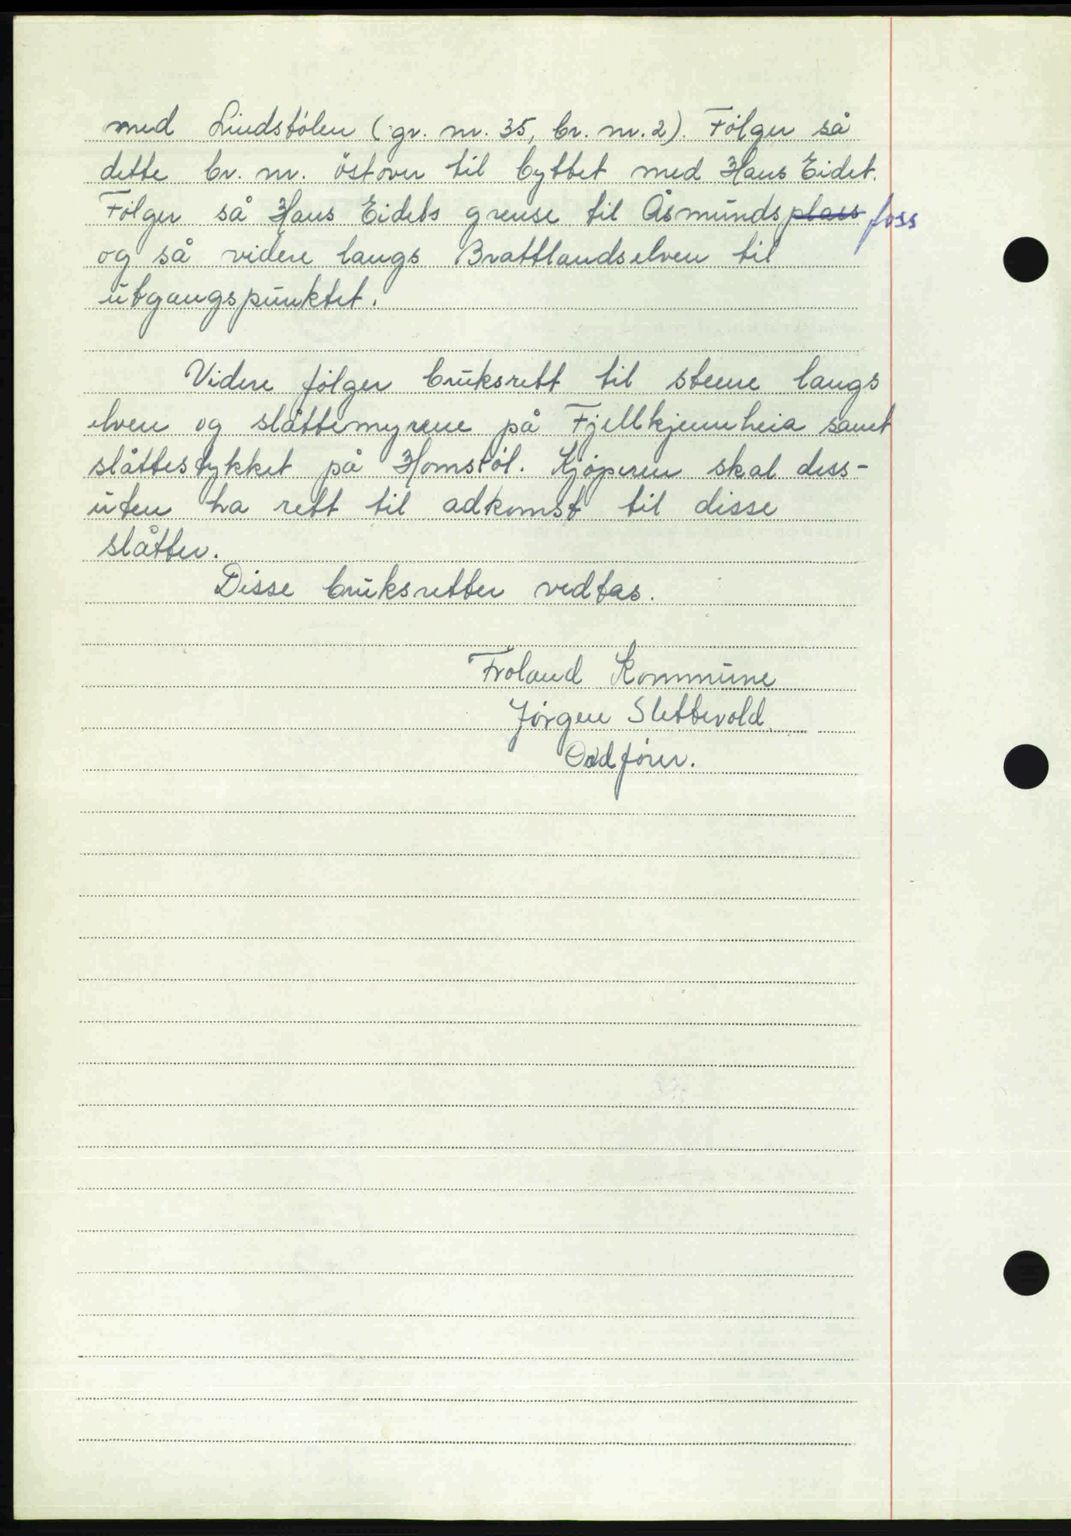 med Lindstölen (gr. nr. 35, br. nr. 2). Følger så
dette br. nr. östover til byttet med Hans Eidet.
Følger så Hans Eidets grense til Åsmundsplass foss
og så videre langs Brattlandselven til
utgangspunktet.
Videre følger bruksrett til steene langs
elven og slåttemyrene på Fjellkjennheia samt
slåttestykket på Homstöl. Kjøperen skal dess-
uten ha rett til adkomst til disse
slåtter.
Disse bruksretter vedtas.
Froland Kommune
Jörgen Slettevold
Ordfører.